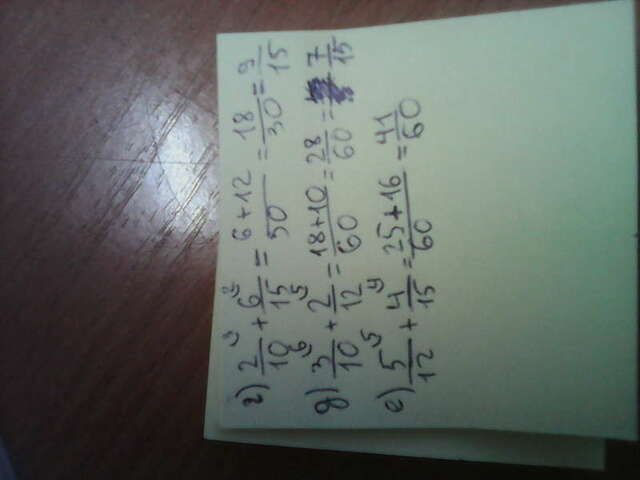 г) 2/10 ³ + 6/15 ² = 6+12/50 = 18/30 = 9/15
д) 3/10 ⁶ + 2/12 ⁵ = 18+10/60 = 28/60 = 7/15
е) 5/12 ⁵ + 4/15 ⁴ = 25+16/60 = 41/60